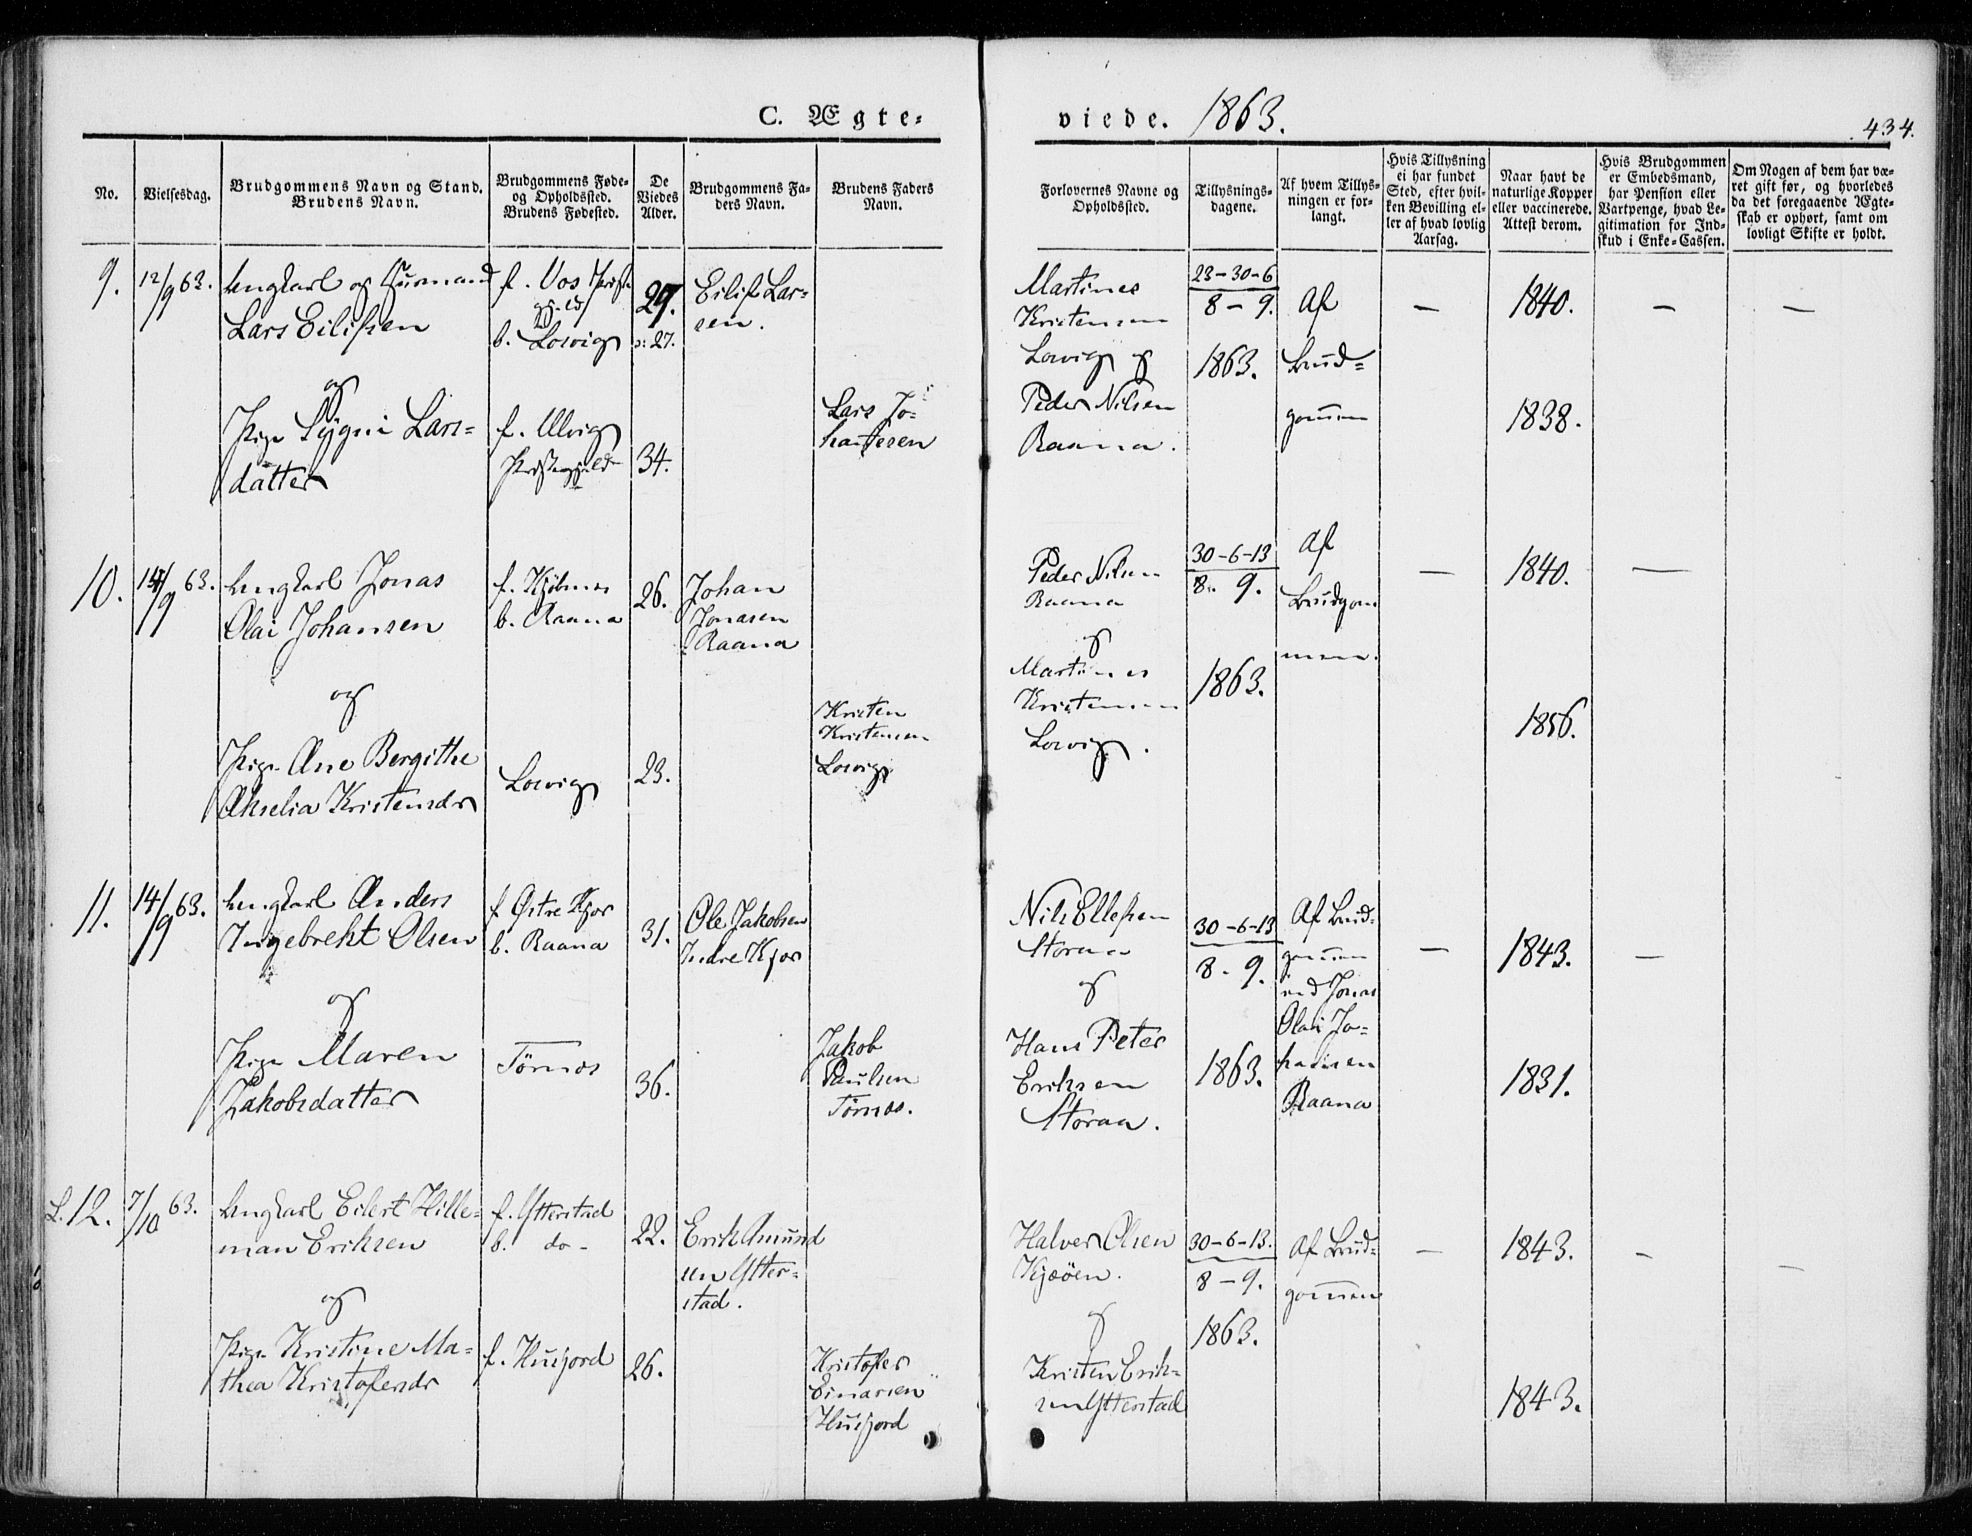 C. Ægte-
viede. 1863.
434.
No.
Vielsesdag.
Brudgommens Navn og Stand.
Brudens Navn.
Brudgommens Føde-
og Opholdssted.
Brudens Fødested.
De
Viedes
Alder.
Brudgommens Fa-
ders Navn.
Brudens Faders
Navn.
Forlovernes Navne og
Opholdssted.
Tillysnings-
dagene.
Af hvem Tillys-
ningen er for-
langt.
Hvis Tillysning
ei har fundet
Sted, efter hvil-
ken Bevilling el-
ler af hvad lovlig
Aarsag.
Naar havt de
naturlige Kopper
eller vaccinerede.
Attest derom.
Hvis Brudgommen
er Embedsmand,
har Pension eller
Vartpenge, hvad Le-
gitimation for Ind-
skud i Enke-Cassen.
Om Nogen af dem har væ-
ret gift før, og hvorledes
da det foregaaende Ægte-
skab er ophørt, samt om
lovligt Skifte er holdt.
9.
12/9 63.
Ungkarl og
Lars Eilifsen
og
Pige Sygni Lars-
datter
f. Vos
b. Lovig
f. Ulvig
Præstegjeld
29.
o: 27.
34.
Eilif Lar-
sen.
Lars Jo-
hannesen
Martines
Kristensen
Lovig og
Peder Nilsen
Raana.
23-30-6
8-9.
1863.
Af
Brud-
gommen
—
1840.
1838.
—
—
10.
14/9 63.
Ungkarl Jonas
Olai Johansen
og
Pige Ane Bergithe
Akselia Kristensdr
f. Kjøbnes
b. Raana
Lovig
26.
23.
Johan
Jonasen
Raana
Kristen
Kristensen
Lovig
Peder Nilsen
Raana
og
Martines
Kristensen
Lovig.
30-6-13
8. 9.
1863.
Af
Brudgom
men.
—
1840.
1856.
—
11.
14/9 63.
Ungkarl Anders
Ingebrekt Olsen
og
Pige Maren
Jakobsdatter
f. Østre Kjor
b. Raana
Tørnes
31.
36.
Ole Jakobsen
Indre Kjor
Jakob
Paulsen
Tørnes.
Nils Ellefsen
Storaa
og
Hans Peter
Eriksen
Storaa.
30-6-13
8-9.
1863.
Af Brud-
gommen
ved Jonas
Olai Jo-
hansen
Raana
—
1843.
1831.
—
L. 12.
7/10 63.
Ungkarl Eilert Hille-
man Eriksen
og
Pige Kristine Ma-
thea Kristofersdr
f. Ytterstad
b. do-
f. Husjord
22.
26.
Erik Amund
sen Ytter-
stad.
Kristofer
Einarsen
Husjord
Halvor Olsen
Kjeøen.
og
Kristen Erik-
sen Ytterstad
30-6-13.
8-9.
1863.
Af Brud-
gommen
—
1843.
1843.
—
—